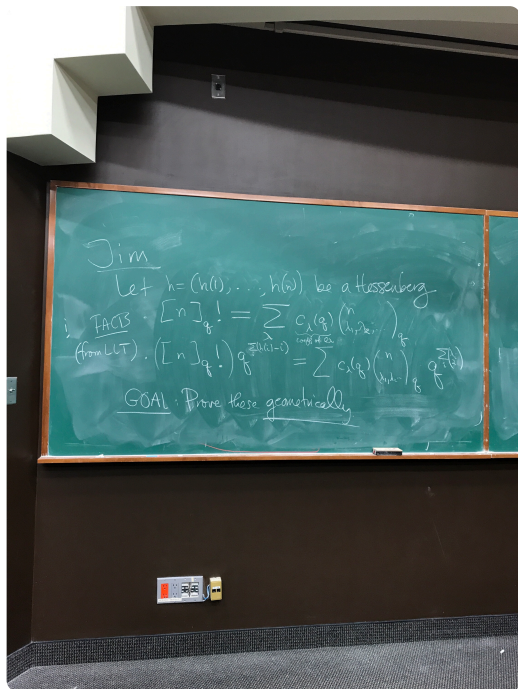 Jim
Let h = (h(1), . . . , h(n)) be a Hessenberg
FACTS · [n]_q! = ∑_λ c_λ(q) (n λ_1, λ_2, ...)_q
(from LLT) · ([n]_q!) q^{∑(h(i)-i)} = ∑ c_λ(q) (n λ_1, λ_2 ...)_q
GOAL : Prove these geometrically